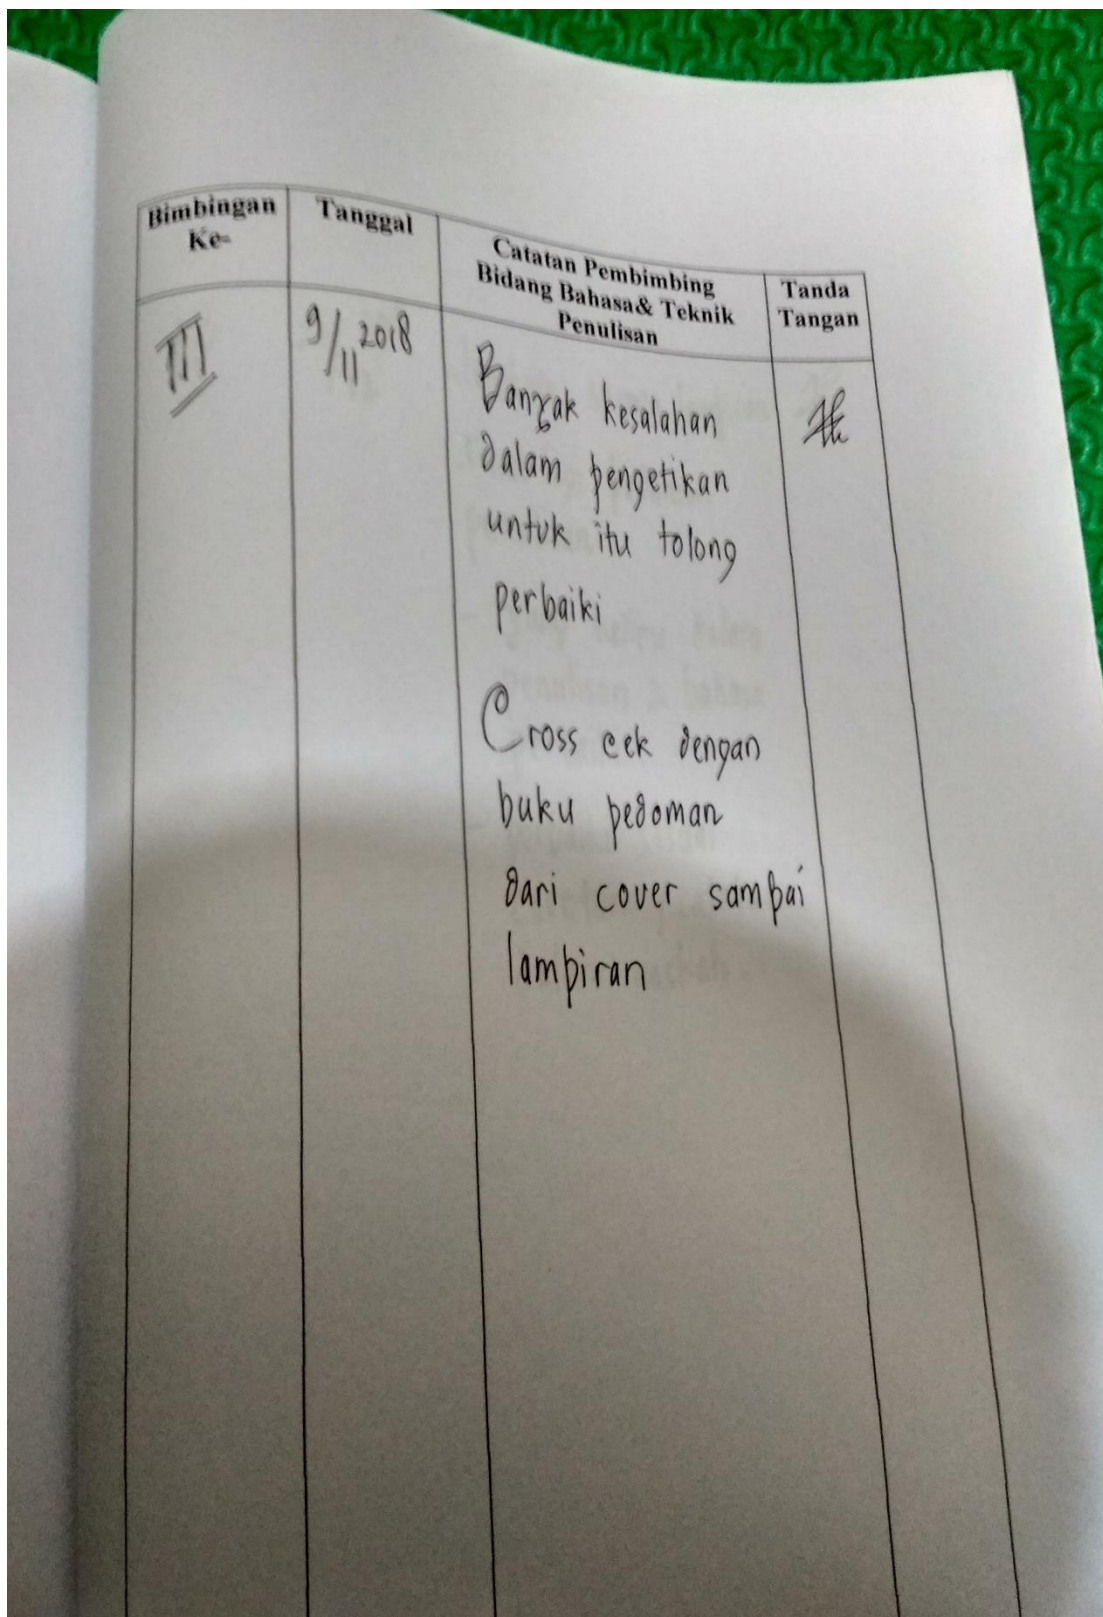 Bimbingan
Ke-
Tanggal
Catatan Pembimbing
Bidang Bahasa& Teknik
Penulisan
Tanda
Tangan
III
9/11 2018
Banyak kesalahan
dalam pengetikan
untuk itu tolong
perbaiki
Cross cek dengan
buku pedoman
dari cover sampai
lampiran